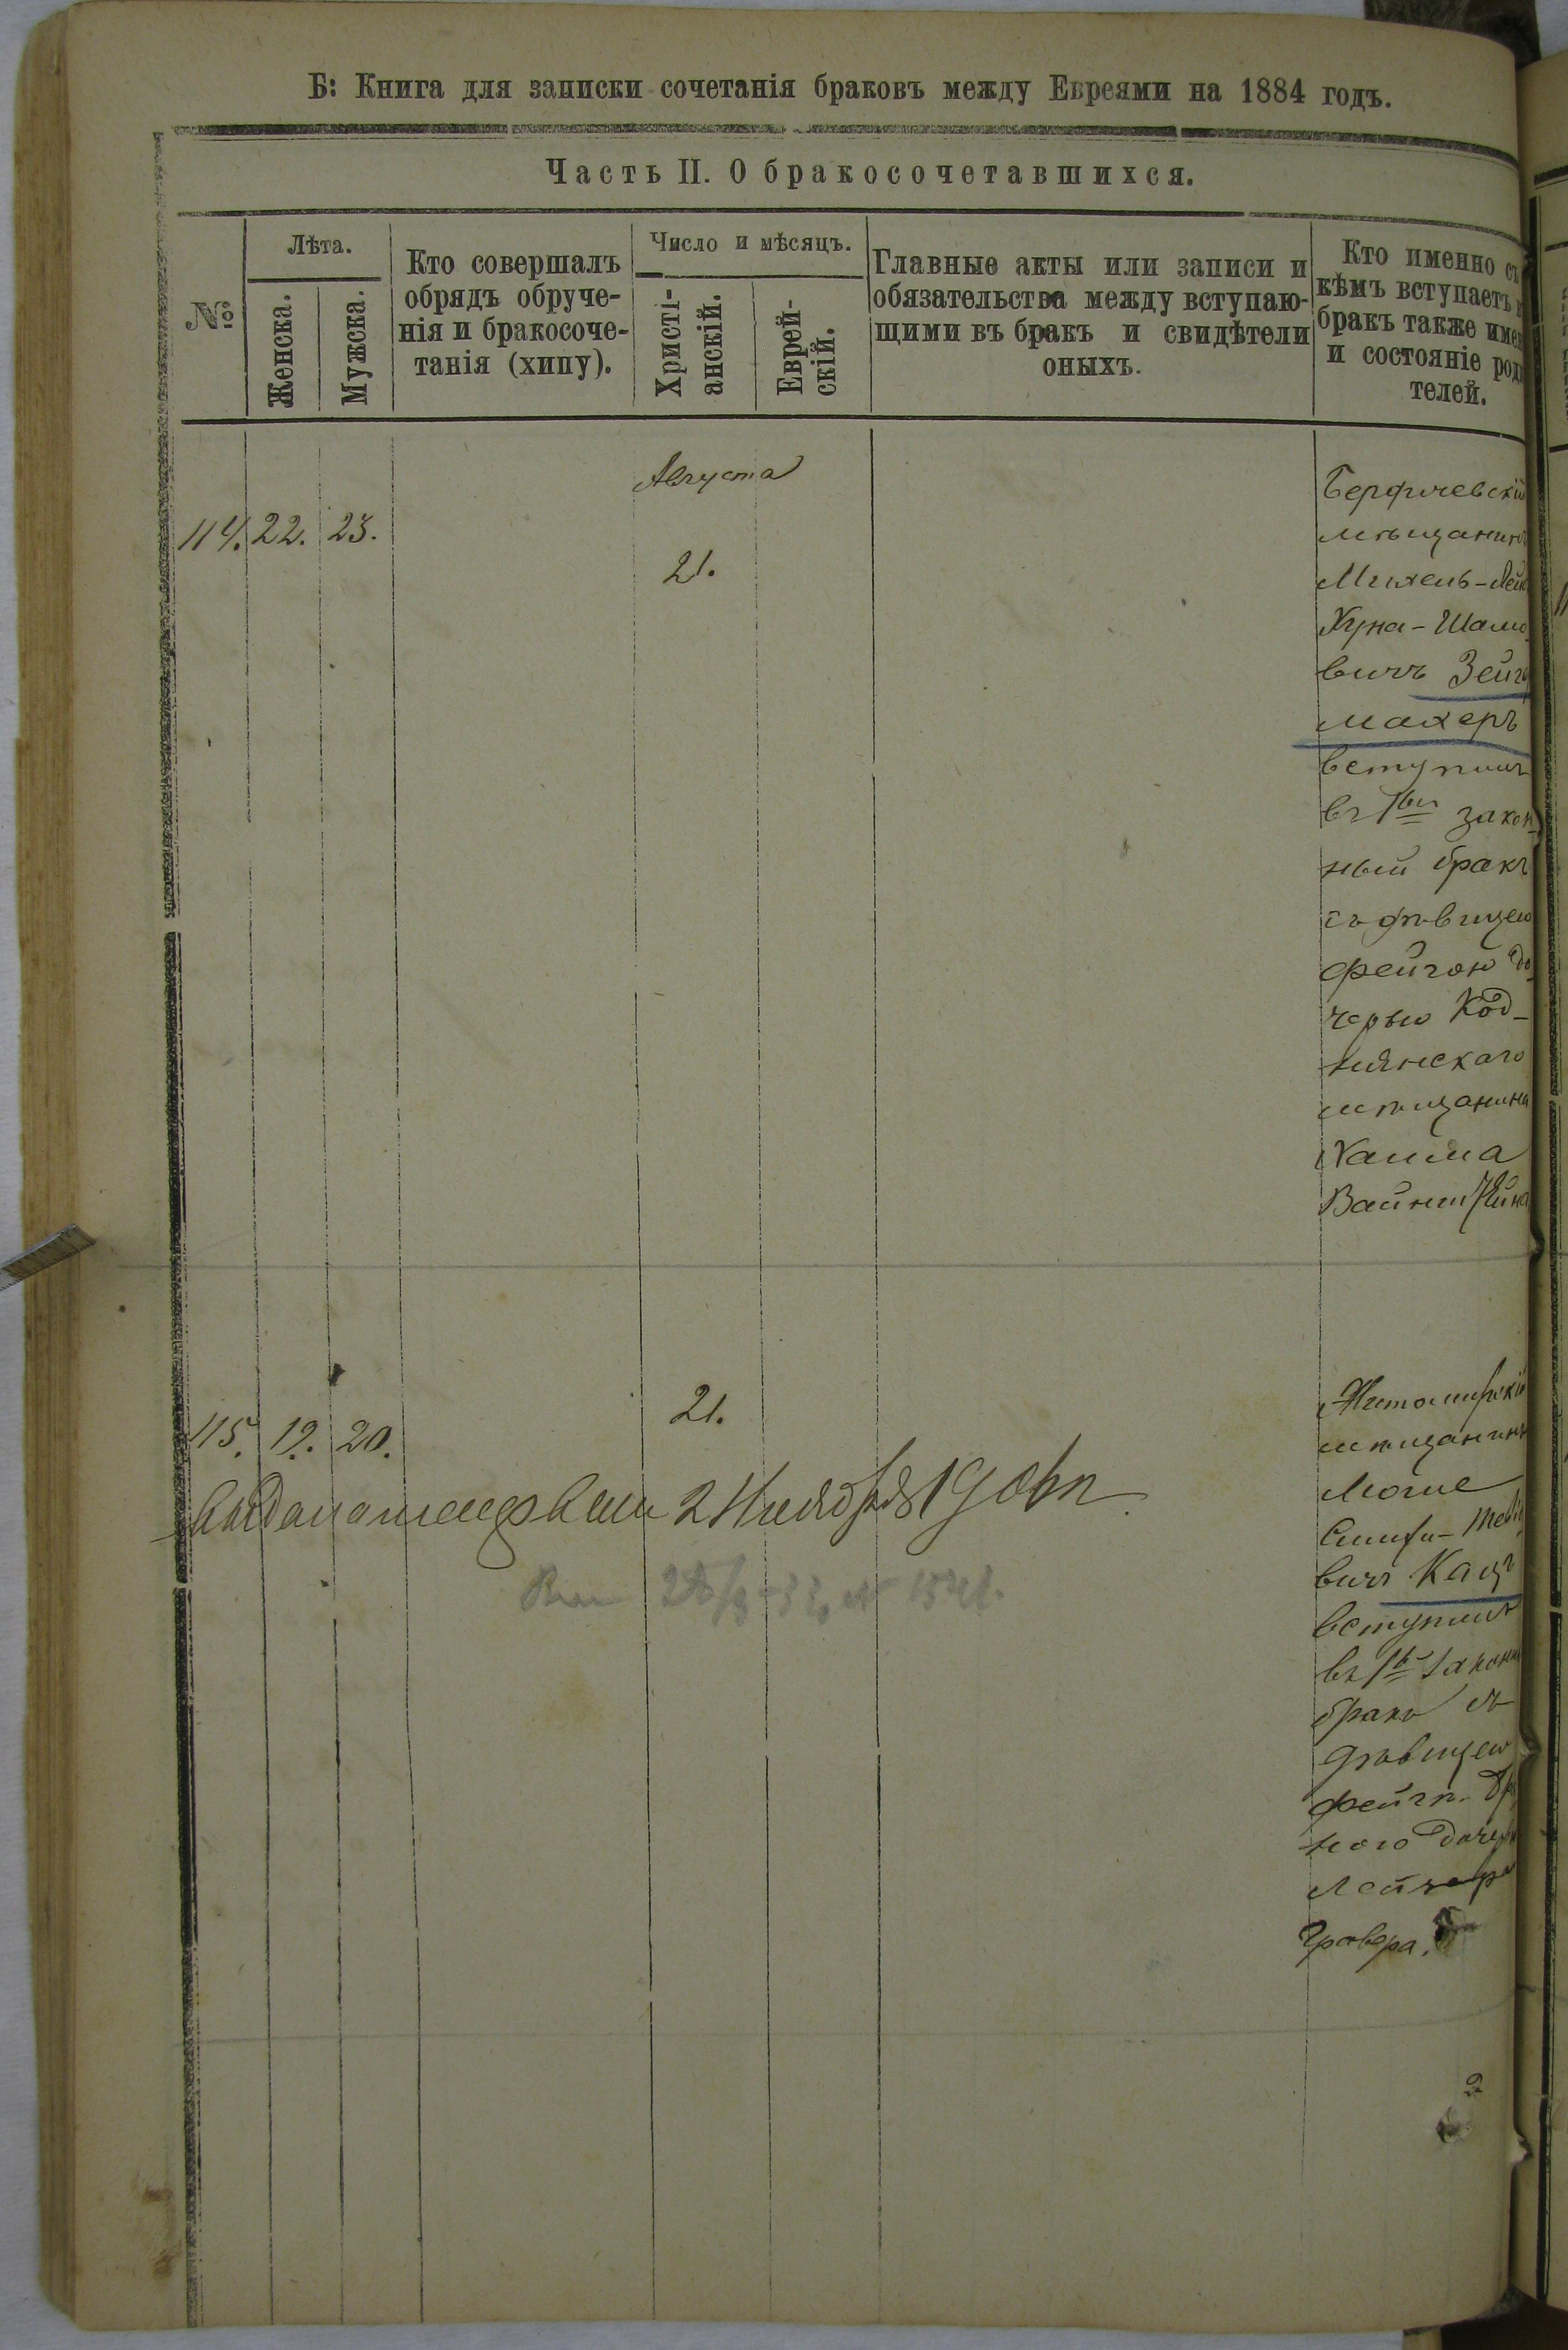 Б: Книга для записки сочетанія браковъ между Евреями на 1884 годъ.
Часть II. О бракосочетавшихся.
№
Лѣта.
Женска.
Мужска.
Кто совершалъ
обрядъ обруче-
нія и бракосоче-
танія (хипу).
Число и мѣсяцъ.
Христі-
анскій.
Еврей-
скій.
Главные акты или записи и
обязательства между вступаю-
щими въ бракъ и свидѣтели
оныхъ.
Кто именно съ
кѣмъ вступаетъ
бракъ также имен
и состояніе роди
телей.
Августа
114. 22. 23.
21.
Бердичевскій
мѣщанинъ
Михель-Лей
Хуна-Шамо
вичъ Зейгъ
махеръ
вступилъ
въ 1вый закон
ный бракъ
съ дѣвицею
Фейгою до
черью Код-
нянскаго
мѣщанина
Хаима
Вайнштейна
115. 19. 20.
21.
Житомирскій
мѣщанинъ
Мошe
вичъ Кацъ
вступилъ
въ 1й законн
бракъ съ
дѣвицею
Фейгѣ
дочерь
Лейзера
Гравера.
2 Ноября 19